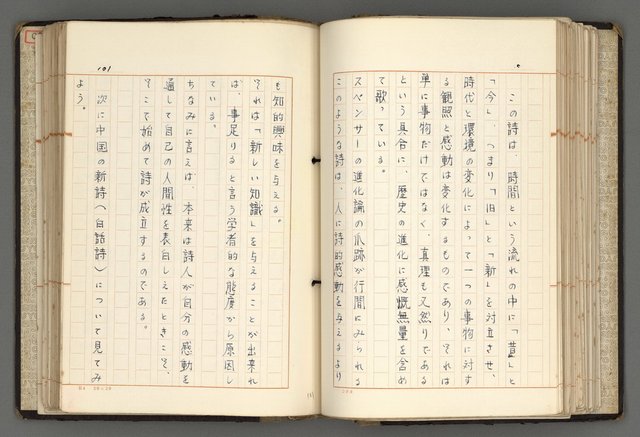 この詩は、時間という流れの中に「昔」と
「今」、つまり「旧」と「新」を対立させ、
時代と環境の変化によって一つの事物に対す
る観照と感動は変化するものであり、それは
単に事物だけではなく、真理も又然りである
という具合に、歴史の進化に感慨無量を含め
て歌っている。
スペンサーの進化論の爪跡が行間にみられる
このような詩は、人に詩的感動を与えるより
101
も知的興味を与える。
それは「新しい知識」を与えることが出来れ
ば、事足りると言う学者的な態度から原因し
ている。
ちなみに言えば、本来は詩人が自分の感動を
通して自己の人間性を表白しえたときこそ、
そこで始めて詩が成立するのである。
次に中国の新詩（白話詩）について見てみ
よう。